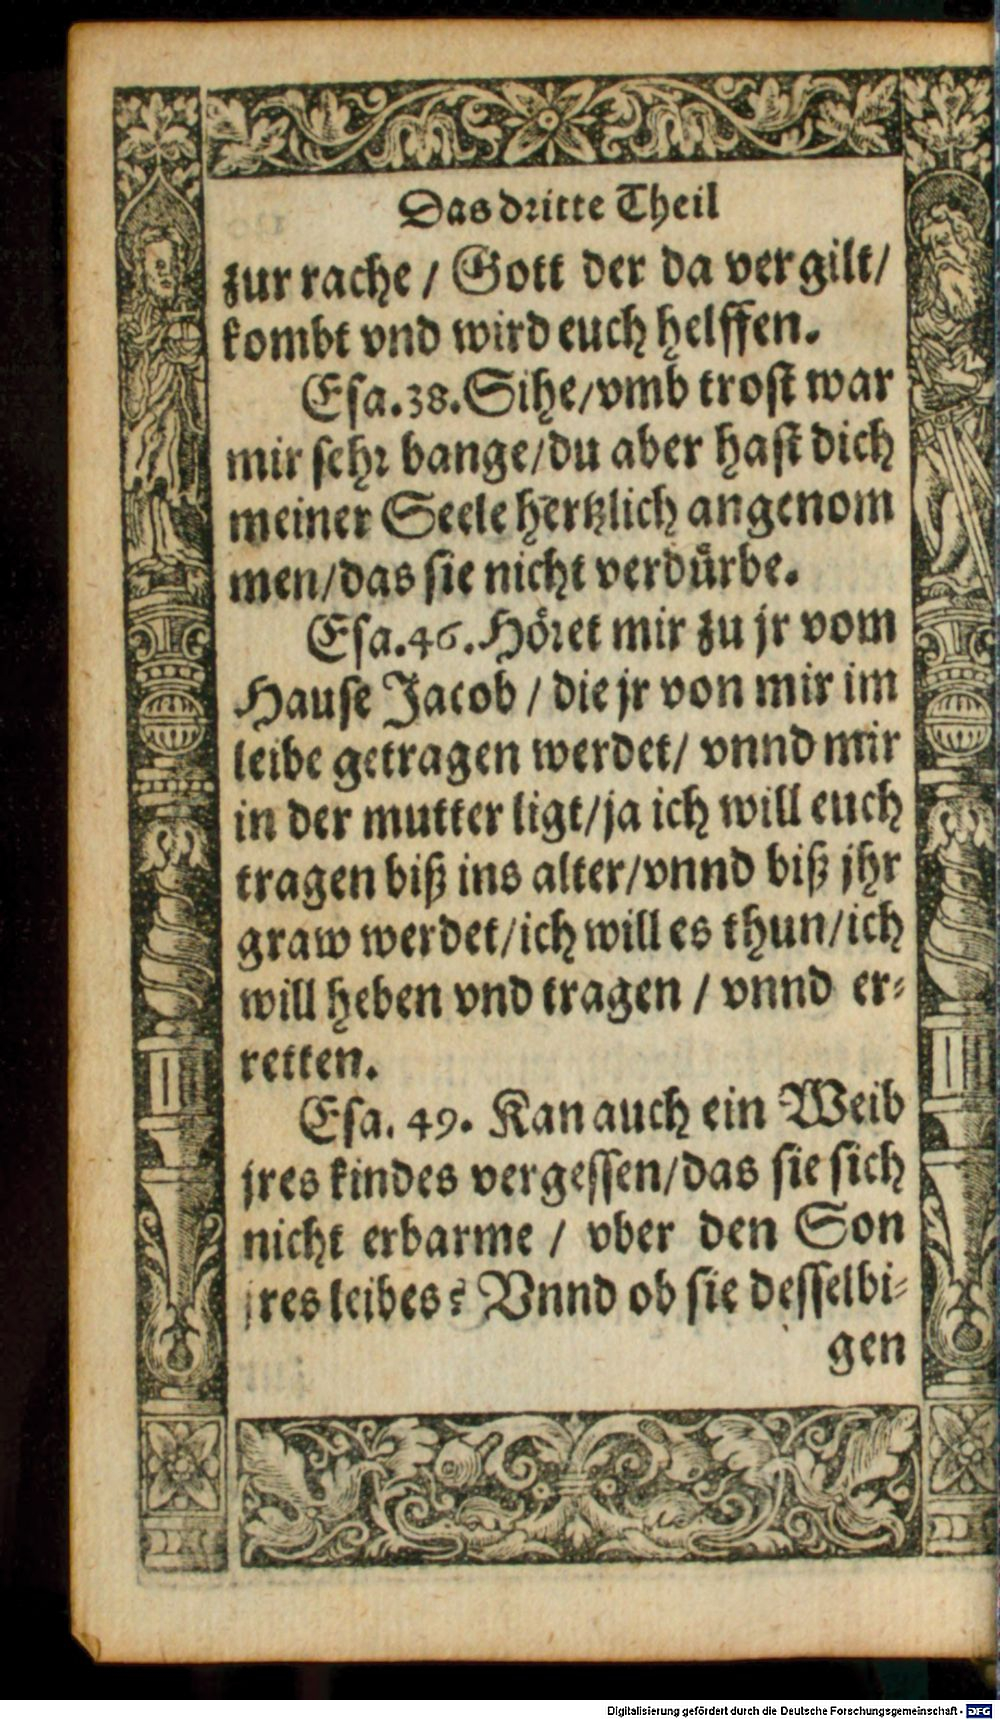 Das dritte Theil
zur rache / Gott der da vergilt/
kombt vnd wird euch helffen.
Esa.38.Sihe/vmb trost war
mir sehr bange/du aber hast dich
meiner Seele hertzlich angenom
men/das sie nicht verdürbe.
Esa.46.Höret mir zu jr vom
Hause Jacob / die jr von mir im
leibe getragen werdet/ vnnd mir
in der mutter ligt/ja ich will euch
tragen biß ins alter/vnnd biß jhr
graw werdet/ich will es thun/ich
will heben vnd tragen / vnnd er-
retten.
Esa. 49. Kan auch ein Weib
jres kindes vergessen/das sie sich
nicht erbarme / vber den Son
jres leibes? Vnnd ob sie desselbi-
gen
Digitalisierung gefördert durch die Deutsche Forschungsgemeinschaft - DFG